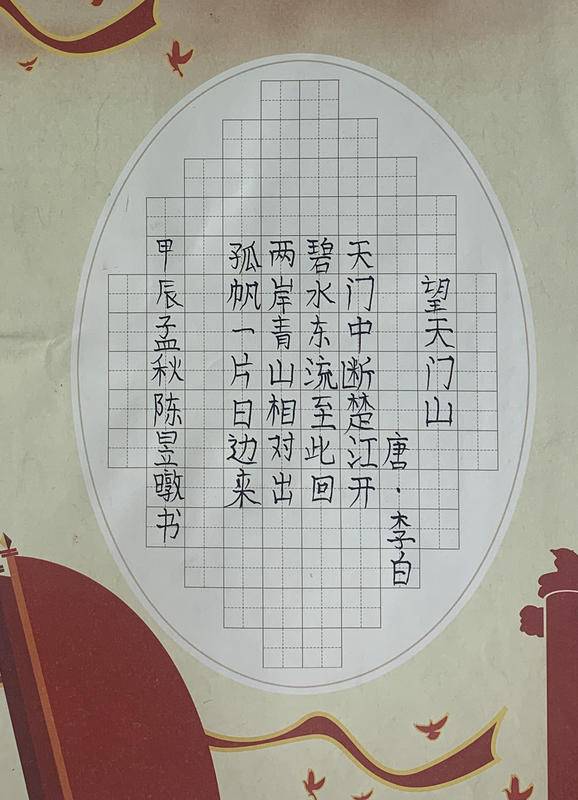 望天门山
唐·李白
天门中断楚江开
碧水东流至此回
两岸青山相对出
孤帆一片日边来
甲辰孟秋陈昱暾书